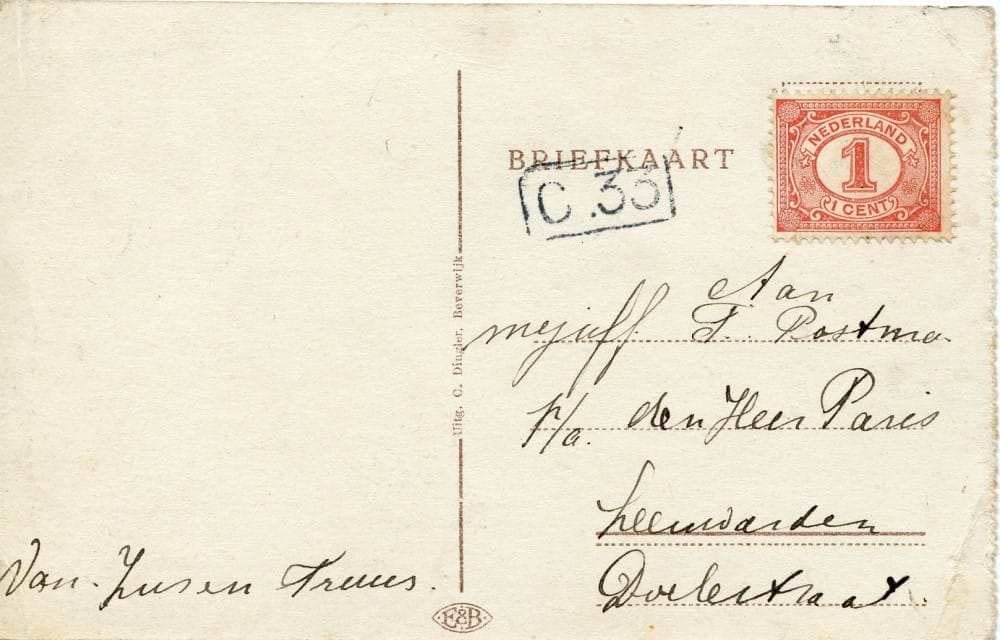 BRIEFKAART
C.33
NEDERLAND
1
1 CENT
Aan
mejuff F. Postma
p/a. den Heer Paris
Leeuwarden
Doelestraat.
Uitg. C. Dingler, Beverwijk
Van Zus en Truus.
E&B